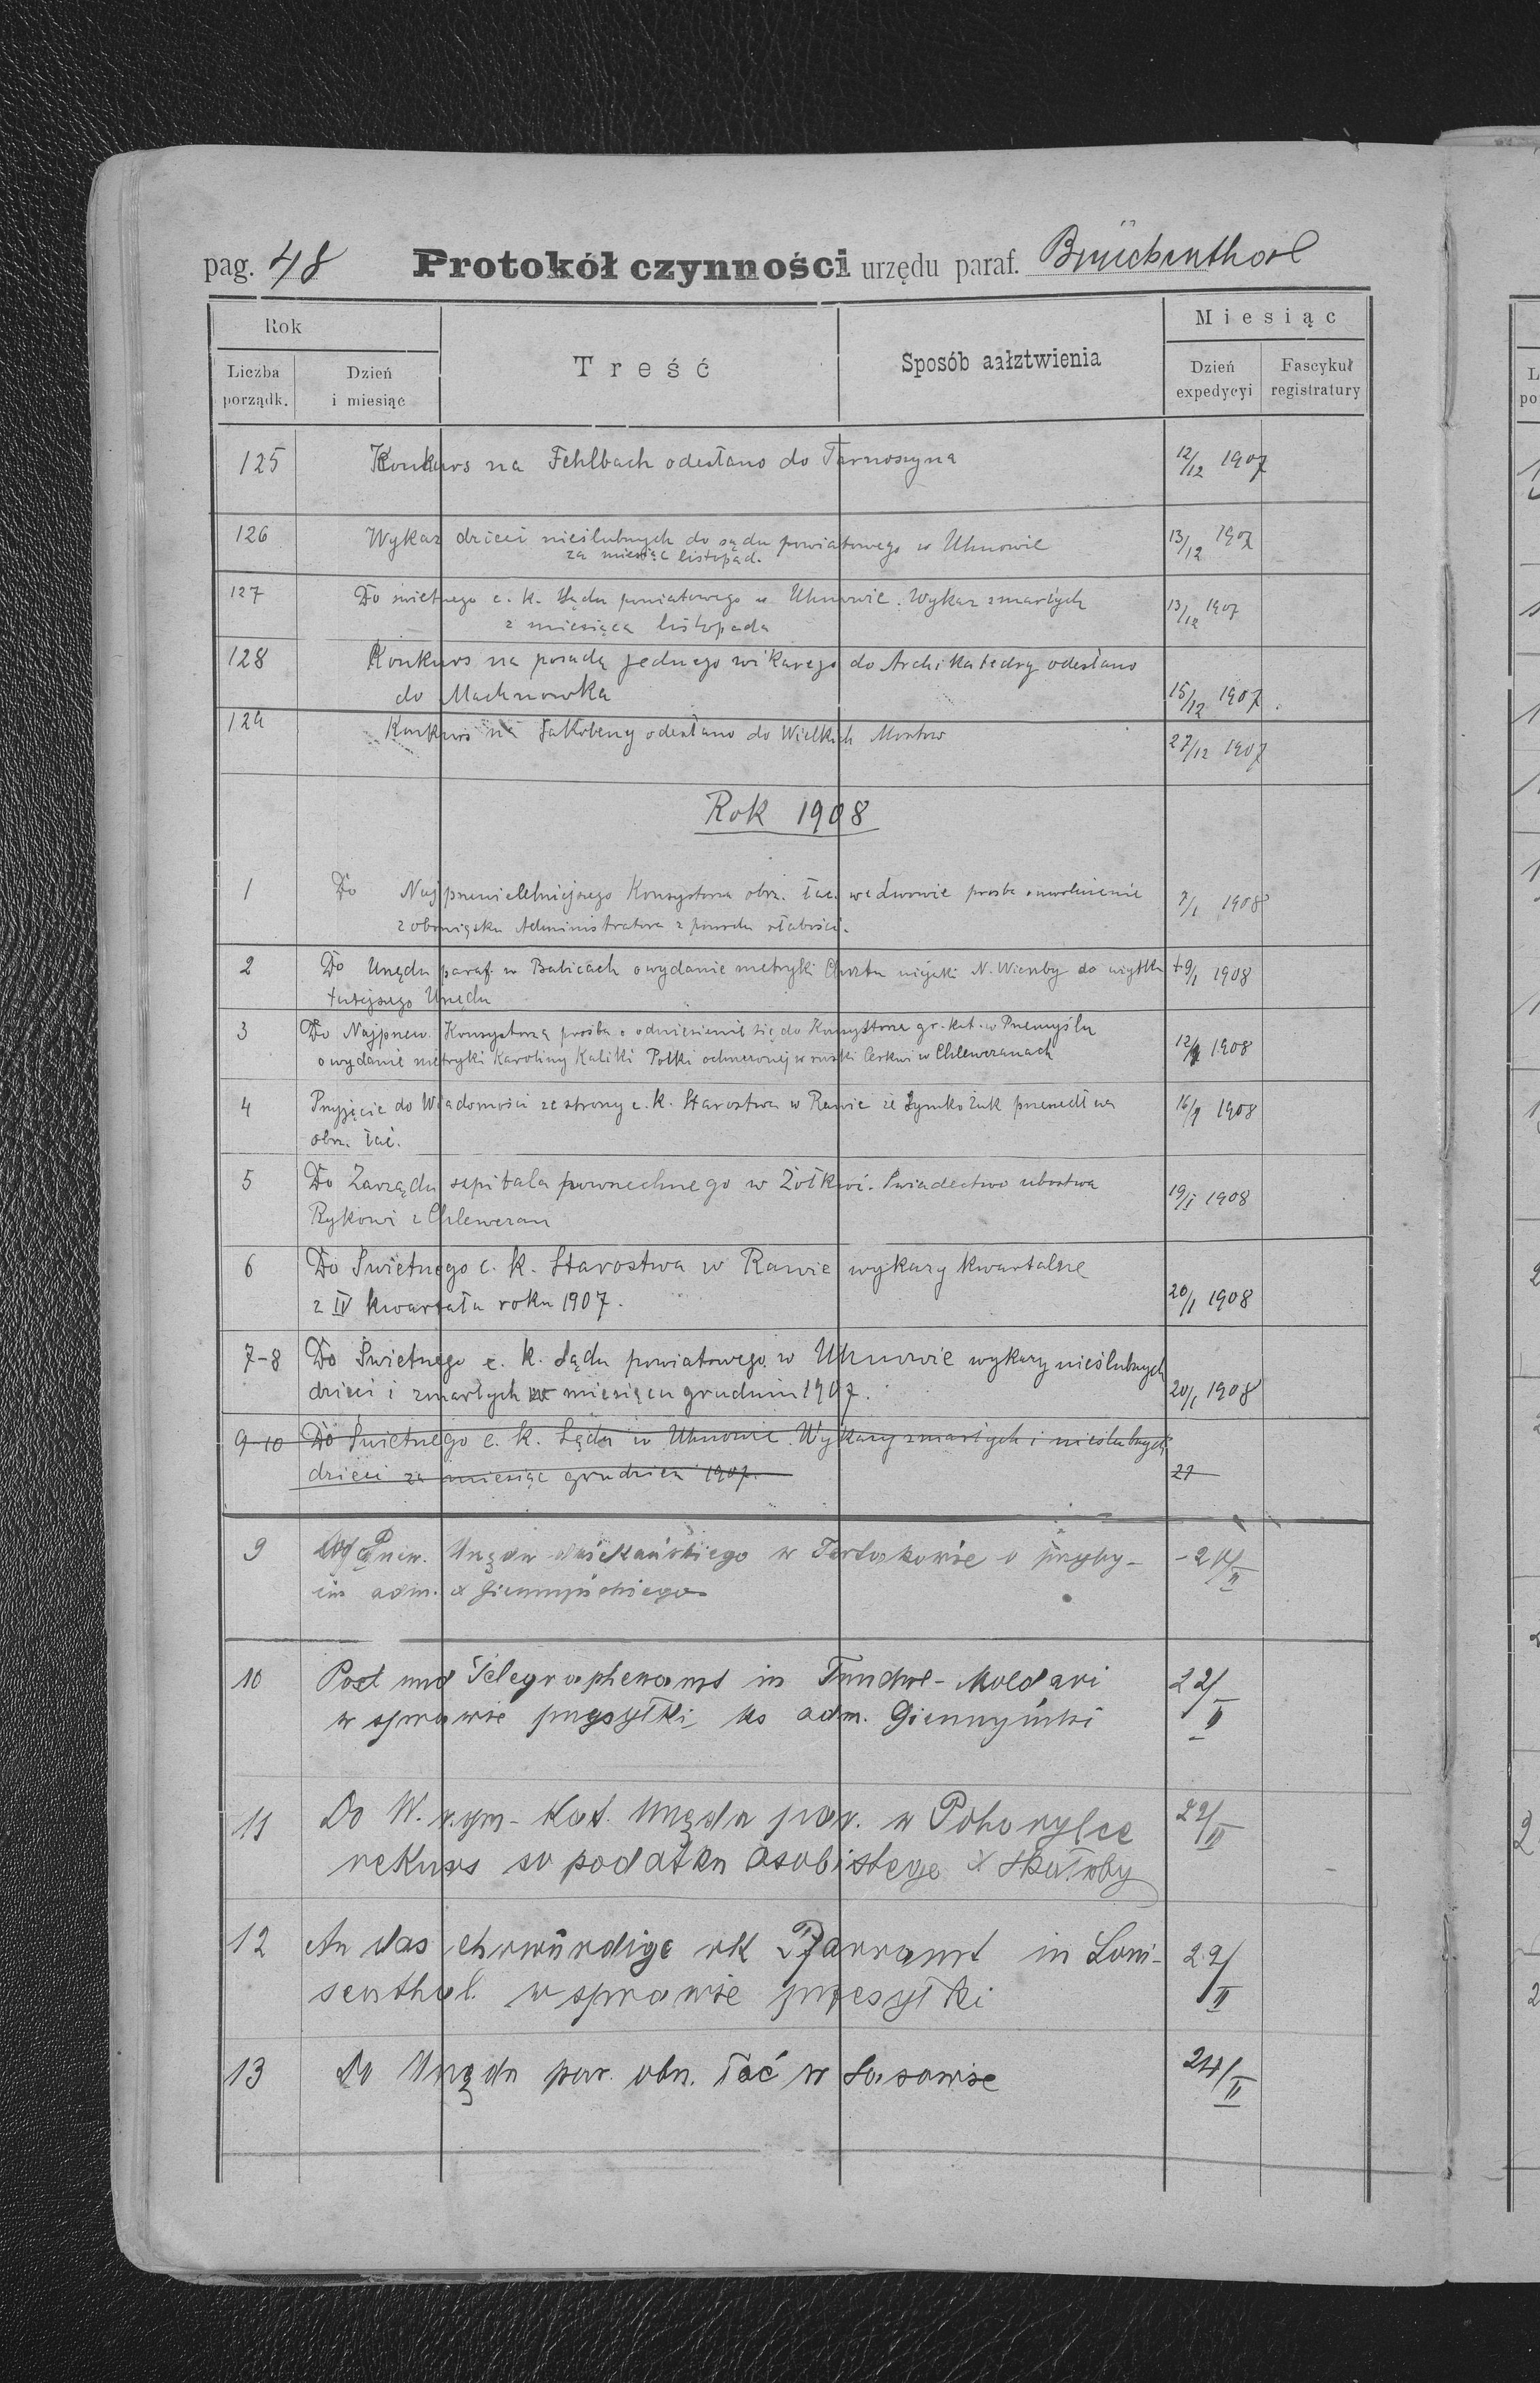 pag. 48 Protokół czynności urzędu paraf. Brückenthal
Rok Miesiąc
Liczba porządk. Dzień i miesiąc Treść Sposób aałztwienia Dzień expedycyi Fascykuł registratury
125 Konkurs na Fehlbach odesłano do Tarnoszyna 12/12 1907
126 Wykaz dzieci nieślubnych do sądu powiatowego w Uhnowie 13/12 1907
za miesiąc listopad.
127 Do świetnego c. k. Sądu powiatowego w Uhnowie. Wykaz zmarłych 13/12 1907
z miesiąca listopada
128 Konkurs na posadę jednego wikarego do Archikatedry odesłano
do Machnowka 15/12 1907.
129 Konkurs na Jakobeny odesłano do Wielkich Mostów 27/12 1907
Rok 1908
1 Do Najprzewielebniejszego Konsystorza obrz. łac. we Lwowie prośba o uwolnienie 7/I 1908
z obowiązku Administratora z powodu słabości.
2 Do Urzędu paraf. w Babicach o wydanie metryki Chrztu niejaki N. Wierzby do użytku 9/I 1908
tutejszego Urzędu
3 Do Najprzew. Konsystorza prośba o odniesienie się do Konsystorza gr.-kat. w Przemyślu
o wydanie metryki Karoliny Kaliki Polki ochrzczonej w ruskij Cerkwi w Chlewczanach 12/1 1908
4 Przyjęcie do Wiadomości ze strony c. k. Starostwa w Rawie że Szymko Żuk przeszedł na 16/1 1908
obrz. łać.
5 Do Zarządu szpitala powszechnego w Żółkwi. Świadectwo ubóstwa 19/I 1908
Rykowi z Chlewczan
6 Do Świetnego c. k. Starostwa w Rawie wykazy kwartalne
z IV kwartału roku 1907. 20/I 1908
7-8 Do Świetnego c. k. Sądu powiatowego w Uhnowie wykazy nieślubnych
dzieci i zmarłych w miesiącu grudniu 1907. 20/I 1908
9-10 Do Świetnego c. k. Sądu w Uhnowie. Wykazy zmarłych i nieślubnych
dzieci za miesiąc grudzień 1907. 21
9 Przew. Urzędu dziekańskiego w Tartakowie o przyby-
ciu adm. x Giermyńskiego
10 Post und Telegraphenamt in Fundul-Moldavi 22/II
w sprawie przysyłki ks adm. Giermyński
11 Do W. rzym-Kat. Urzędu par. w Pohorylce 22/II
rekurs so podatku osobistego x Skałuby
12 An das ehrwürdige rk Pfarramt in Loui- 22/II
senthal. w sprawie przesyłki
13 Do Urzędu par. obrz. łać w Sasowie 24/II